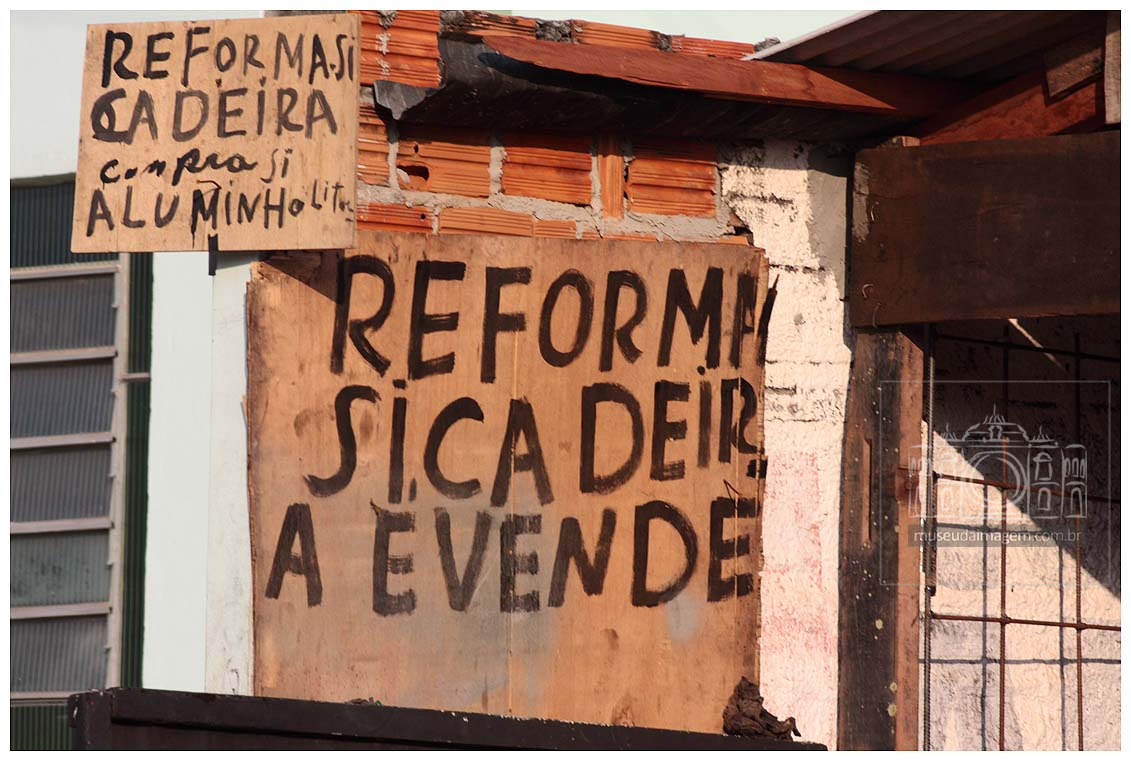 REFORMA.SI
CADEIRA
comprasi
ALUMINHO LITO
REFORMA
SI.CADEIR
A E.VENDE
museudaimagem.com.br